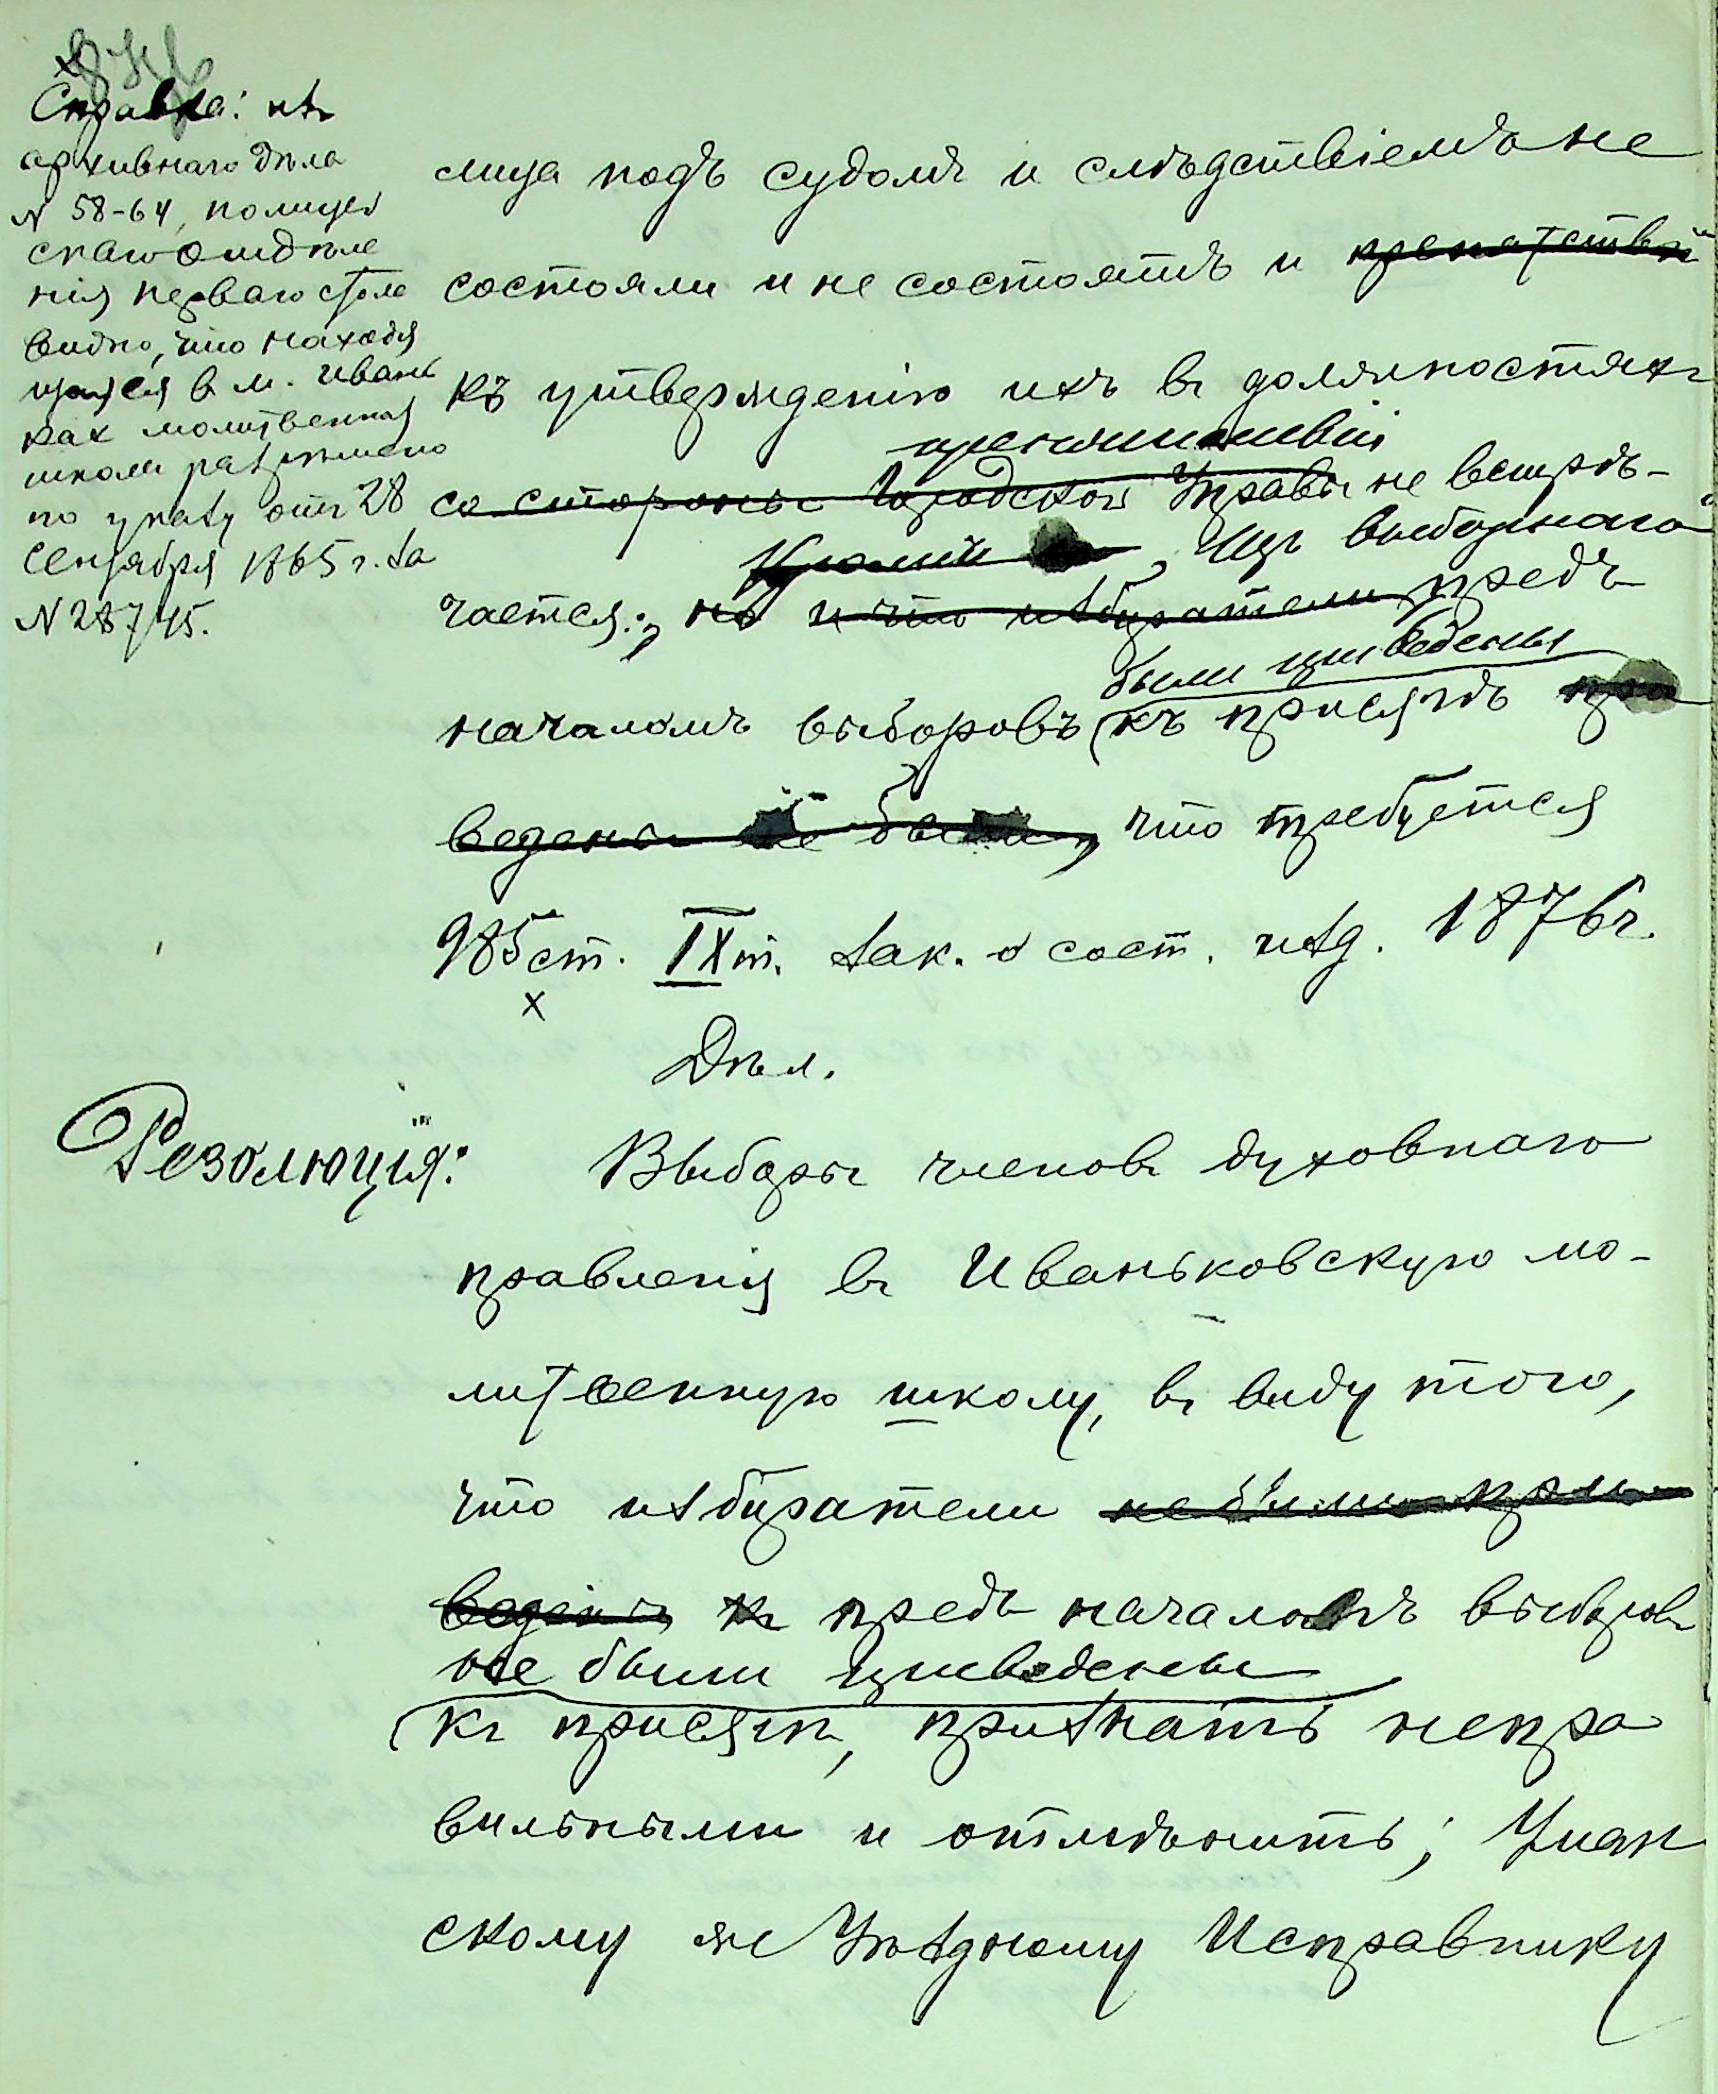 Справка: изъ
архивнаго дѣла
№ 58-64, полицей
скаго отдѣле
нія перваго стола
видно, что находя
щаяся в м. Ивань
ках молитвенная
школа разрѣшена
по указу отъ 28
Сентября 1865 г. за
№ 28745.
лица подъ судомъ и слѣдствіемъ не
состояли и не состоятъ и препятствій
къ утвержденію ихъ въ должностяхъ
препятствій
со стороны Городской Управы не встрѣ-
Изъ выборнаго
чается; но и что избиратели предъ
были приведены
началомъ выборовъ къ присягѣ при
ведены не были, что требуется
985 ст. IX т. Зак. о сост. изд. 1876 г.
х
Дѣл.
Резолюція:
Выборы членовъ духовнаго
правленія въ Иваньковскую мо-
литвенную школу, въ виду того,
что избиратели не были при
ведены къ предъ началомъ выборовъ
не были приведены
къ присягѣ, признать непра
вильными и отмѣнить; Уман
скому же Уѣздному Исправнику